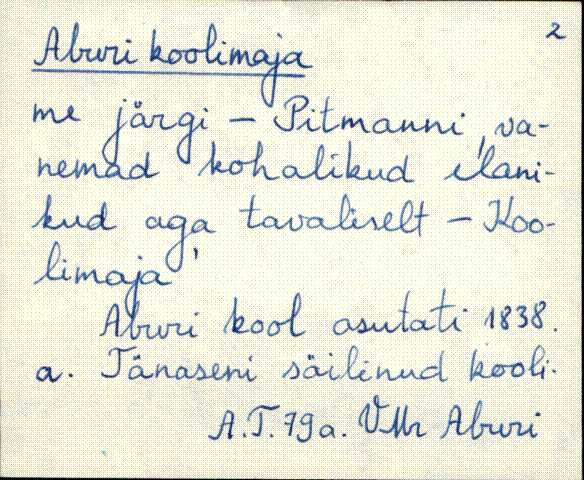 2
Aburi koolimaja
me järgi – Pitmanni, va-
nemad kohalikud elani-
kud aga tavaliselt – Koo-
limaja'
Aburi kool asutati 1838.
a. Tänaseni säilinud kooli-
A.T. 79a. VMr Aburi